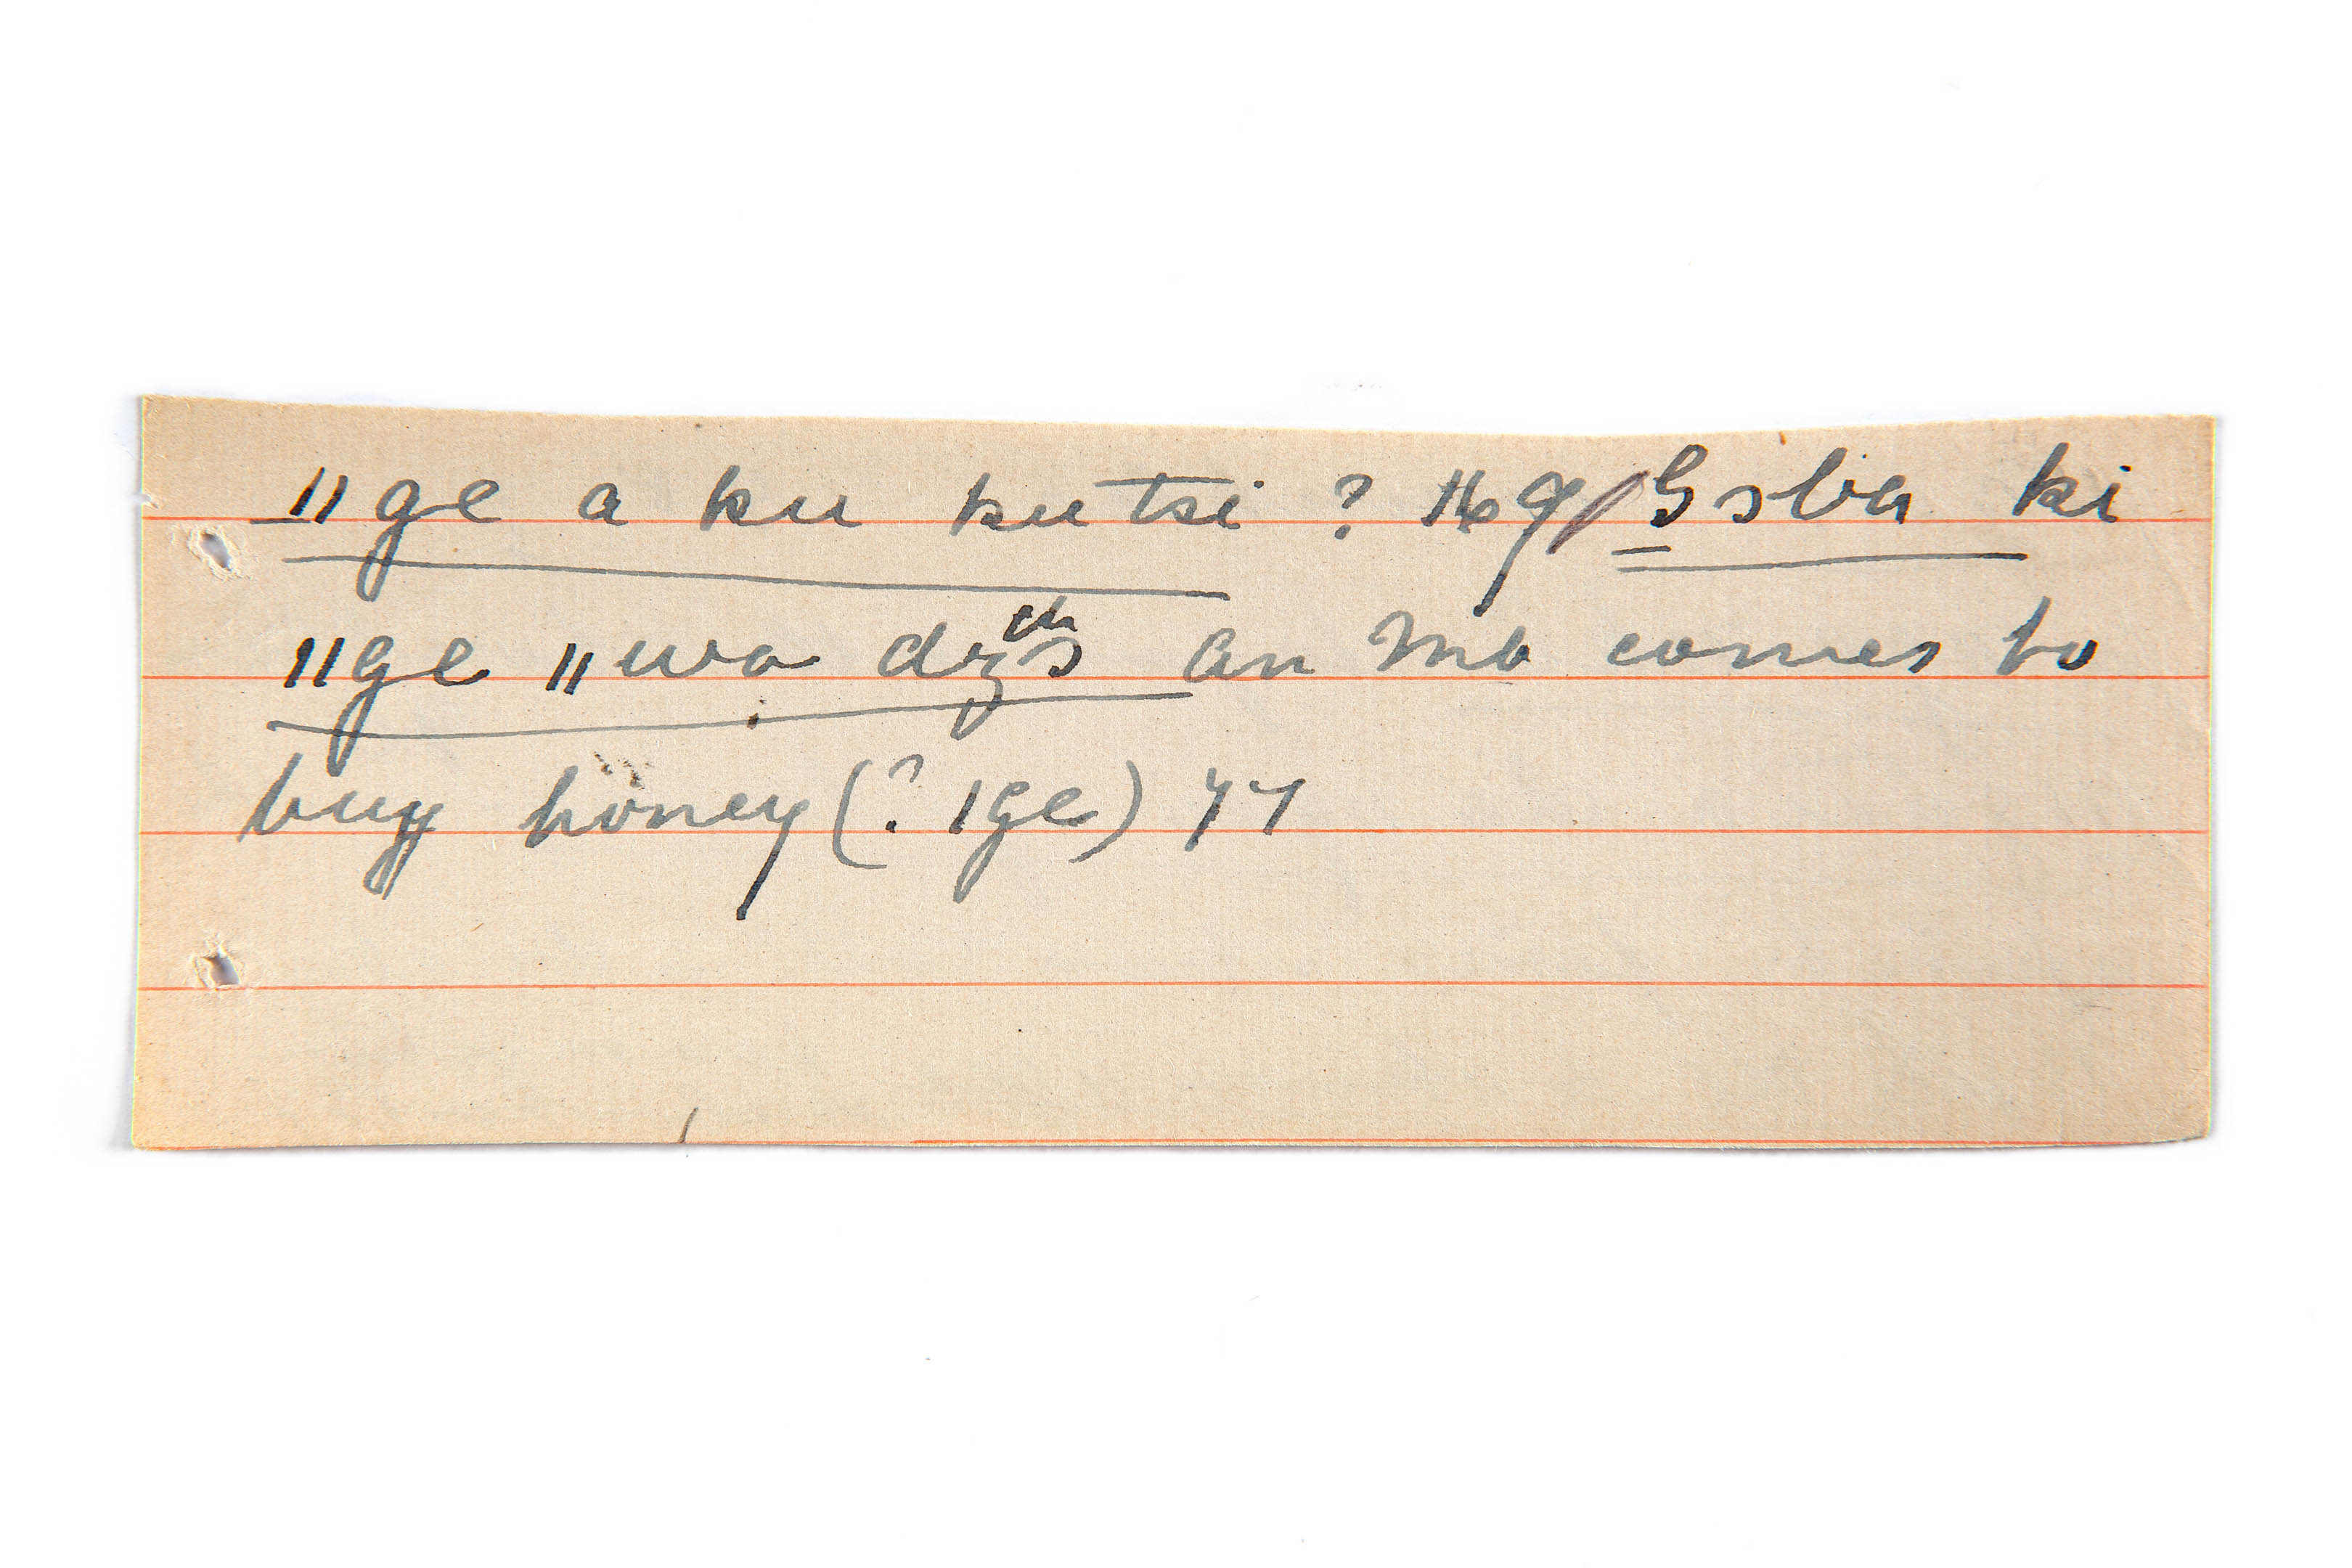 ǁge a ku kutsi ? ki
ǁge ǁwa an Mb comes to
buy honey (? ǀge) 77